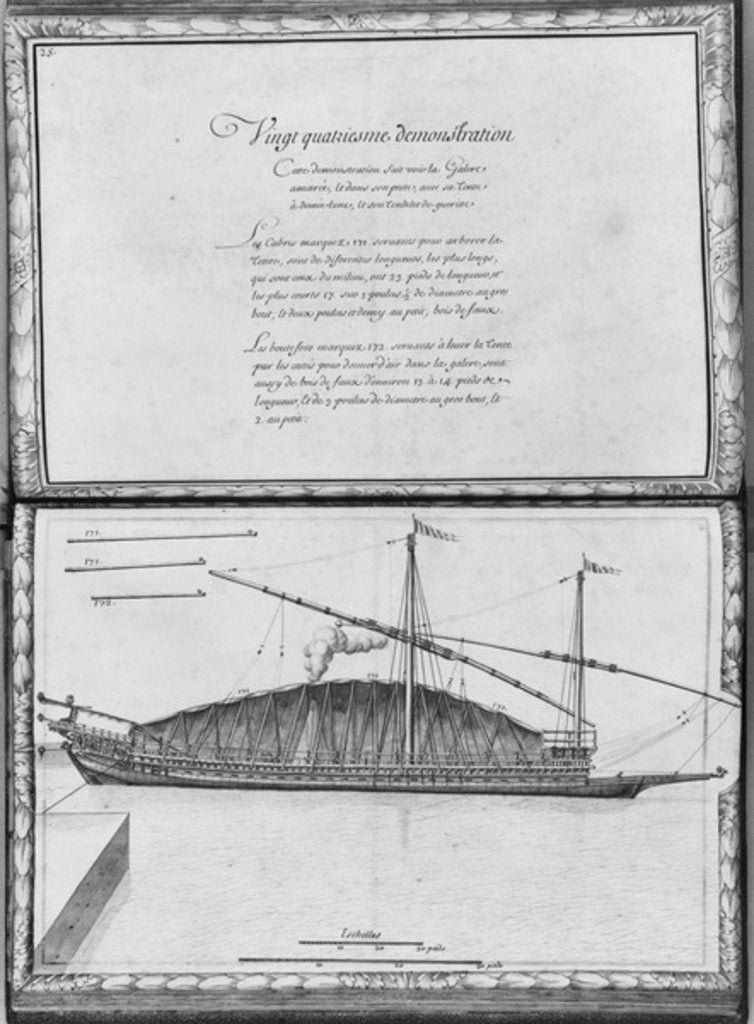 25.
Vingt quatriesme demonstration
Cette demonstration fait voir la Galere,
amarée, et dans son port, avec sa Tente
à demie et son Tendelet de
Les Cabris marquez 171. servants pour arborer la
Tente, sons de differentes longueurs, les plus longs,
qui sont ceux du milieu, ont 23 pieds de longueur, et
les plus courts 17. sur 3 poulces ½ de diametre au gros
bout, et deux poulces et demy au petit, bois de faux.
Les boute fore marquez 172. servants à la Tente
par les costés pour donner d'air dans la galere, sont
aussy de bois de faux d'environ 13 à 14 pieds de
longueur, et de 3 poulces de diametre au gros bout, et
2 au petit.
171.
171.
172.
171
172
172.
Eschelles
10 20 30 pieds
10 20 30 pieds